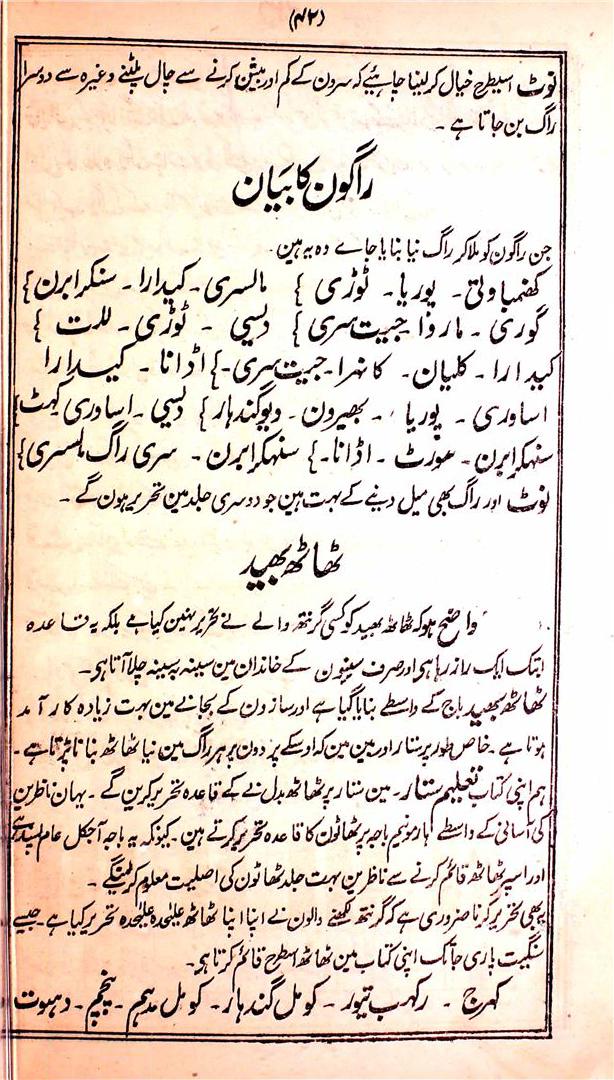 (۴۲)
نوٹ اسیطرح خیال کر لینا چاہئیے کہ سرون کے کم اور بیش کرنے سے چال پلٹنے وغیرہ سے دوسرا
راگ بن جاتا ہے ۔
راگون کا بیان
جن راگون کو ملا کر راگ نیا بنایا جاے وہ یہ ہین ۔
کھنباوتی ۔ پوریا ۔ ٹوڑی } مالسری ۔ کیدارا ۔ سنکرابرن }
گوری ۔ ماروا جیت سری } دیسی ۔ ٹوڑی ۔ للت }
کیدارا ۔ کلیان ۔ کانہرا ۔ جیت سری ۔ } اڈانا ۔ کیدارا
اساوری ۔ پوریا ۔ بھیرون ۔ دیوگندہار } دیسی ۔ اساوری کہٹ }
سنہکرابرن ۔ سورٹ ۔ اڈانا ۔ } سنہکرابرن ۔ سری راگ ملسری }
نوٹ اور راگ بھی میل دینے کے بہت ہین جو دوسری جلد مین تحریر ہون گے ۔
ٹھاٹھ بھید
واضح ہو کہ ٹھاٹھ بھید کو کسی گرنتھ والے نے تحریر نہین کیا ہے بلکہ یہ قاعدہ
ابتک ایک راز رہا ہی اور صرف سینون کے خاندان مین سینہ بسینہ چلا آتا ہی ۔
ٹھاٹھ بھید باج کے واسطے بنایا گیا ہے اور سازون کے بجانے مین بہت زیادہ کارآمد
ہوتا ہے ۔ خاص طور پر ستار اور بین مین کہ اوسکے پردون پر ہر راگ مین نیا ٹھاٹھ بنانا پڑتا ہے ۔
ہم اپنی کتاب تعلیم ستار ۔ مین ستار پر ٹھاٹھ بدلنے کے قاعدہ تحریر کرین گے ۔ یہان ناظرین
کی آسانی کے واسطے ہارمونیم باجہ پر ٹھاٹون کا قاعدہ تحریر کرتے ہین ۔ کیونکہ یہ باجہ آجکل عام پسند ہے
اور اسپر ٹھاٹھ قائم کرنے سے ناظرین بہت جلد ٹھاٹون کی اصلیت معلوم کر لینگے ۔
یہ بھی تحریر کرنا ضروری ہے کہ گرنتھ لکھنے والون نے اپنا اپنا ٹھاٹھ علیٰحدہ علیٰحدہ تحریر کیا ہے ۔ جیسے
سنگیت پاری جاتک اپنی کتاب مین ٹھاٹھ اسطرح قائم کرتا ہی ۔
کھرج ۔ رکہب تیور ۔ کومل گندہار ۔ کومل مدہم ۔ پنچم ۔ دہیوت